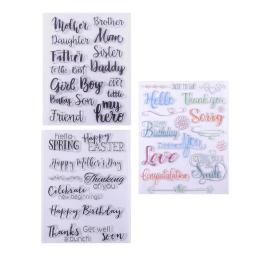 Mother Brother
Daughter Mom
Father Sister
to the Best Daddy
Girl Boy ever
little
Baby Son my
Friend hero
hello Happy
SPRING EASTER
Happy Mother's Day
Thinking
of you
Celebrate
new beginnings!
Happy Birthday
Thanks Get well
a bunch! soon
JUST TO SAY
Hello Thank you
Sorry
Happy
Birthday
Love You
Congratulations Smile